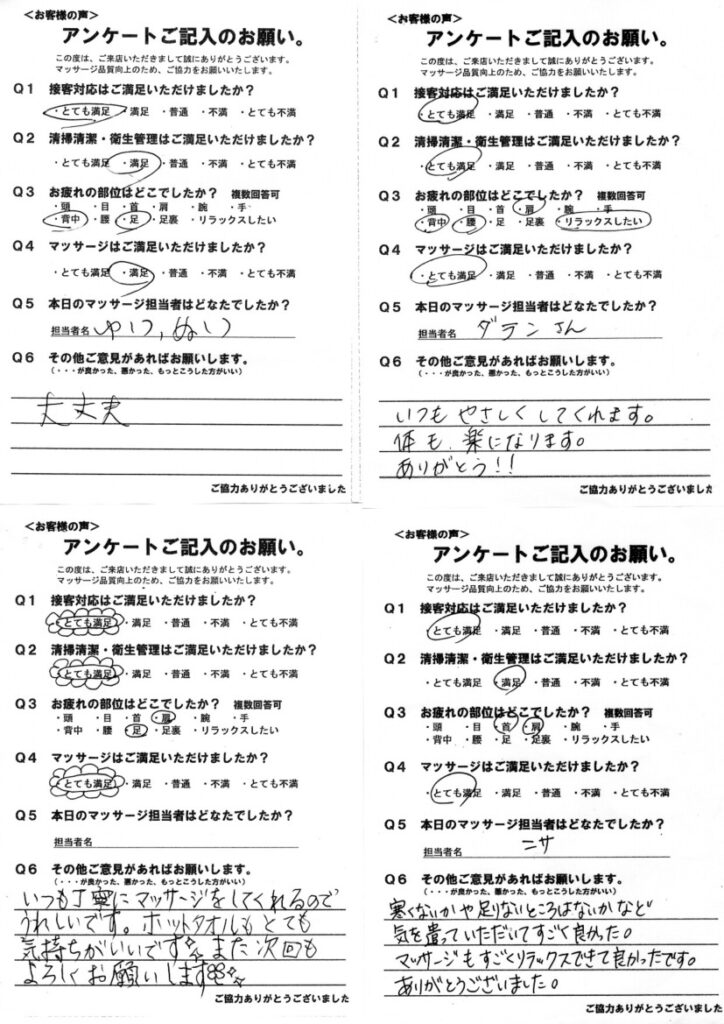 ＜お客様の声＞
アンケートご記入のお願い。
この度は、ご来店いただきまして誠にありがとうございます。
マッサージ品質向上のため、ご協力をお願いいたします。
Q1 接客対応はご満足いただけましたか？
・とても満足 ・満足 ・普通 ・不満 ・とても不満
Q2 清掃清潔・衛生管理はご満足いただけましたか？
・とても満足 ・満足 ・普通 ・不満 ・とても不満
Q3 お疲れの部位はどこでしたか？ 複数回答可
・頭 ・目 ・首 ・肩 ・腕 ・手
・背中 ・腰 ・足 ・足裏 ・リラックスしたい
Q4 マッサージはご満足いただけましたか？
・とても満足 ・満足 ・普通 ・不満 ・とても不満
Q5 本日のマッサージ担当者はどなたでしたか？
担当者名
Q6 その他ご意見があればお願いします。
（・・・が良かった、悪かった、もっとこうした方がいい）
大丈夫
ご協力ありがとうございました
＜お客様の声＞
アンケートご記入のお願い。
この度は、ご来店いただきまして誠にありがとうございます。
マッサージ品質向上のため、ご協力をお願いいたします。
Q1 接客対応はご満足いただけましたか？
・とても満足 ・満足 ・普通 ・不満 ・とても不満
Q2 清掃清潔・衛生管理はご満足いただけましたか？
・とても満足 ・満足 ・普通 ・不満 ・とても不満
Q3 お疲れの部位はどこでしたか？ 複数回答可
・頭 ・目 ・首 ・肩 ・腕 ・手
・背中 ・腰 ・足 ・足裏 ・リラックスしたい
Q4 マッサージはご満足いただけましたか？
・とても満足 ・満足 ・普通 ・不満 ・とても不満
Q5 本日のマッサージ担当者はどなたでしたか？
担当者名 ダランさん
Q6 その他ご意見があればお願いします。
（・・・が良かった、悪かった、もっとこうした方がいい）
いつも やさしく してくれます。
体も 楽になります。
ありがとう!!
ご協力ありがとうございました
＜お客様の声＞
アンケートご記入のお願い。
この度は、ご来店いただきまして誠にありがとうございます。
マッサージ品質向上のため、ご協力をお願いいたします。
Q1 接客対応はご満足いただけましたか？
・とても満足 ・満足 ・普通 ・不満 ・とても不満
Q2 清掃清潔・衛生管理はご満足いただけましたか？
・とても満足 ・満足 ・普通 ・不満 ・とても不満
Q3 お疲れの部位はどこでしたか？ 複数回答可
・頭 ・目 ・首 ・肩 ・腕 ・手
・背中 ・腰 ・足 ・足裏 ・リラックスしたい
Q4 マッサージはご満足いただけましたか？
・とても満足 ・満足 ・普通 ・不満 ・とても不満
Q5 本日のマッサージ担当者はどなたでしたか？
担当者名
Q6 その他ご意見があればお願いします。
（・・・が良かった、悪かった、もっとこうした方がいい）
いつも丁寧にマッサージをしてくれるので
うれしいです。ホットタオルもとても
気持ちがいいです また次回も
よろしくお願いします
ご協力ありがとうございました
＜お客様の声＞
アンケートご記入のお願い。
この度は、ご来店いただきまして誠にありがとうございます。
マッサージ品質向上のため、ご協力をお願いいたします。
Q1 接客対応はご満足いただけましたか？
・とても満足 ・満足 ・普通 ・不満 ・とても不満
Q2 清掃清潔・衛生管理はご満足いただけましたか？
・とても満足 ・満足 ・普通 ・不満 ・とても不満
Q3 お疲れの部位はどこでしたか？ 複数回答可
・頭 ・目 ・首 ・肩 ・腕 ・手
・背中 ・腰 ・足 ・足裏 ・リラックスしたい
Q4 マッサージはご満足いただけましたか？
・とても満足 ・満足 ・普通 ・不満 ・とても不満
Q5 本日のマッサージ担当者はどなたでしたか？
担当者名 ニサ
Q6 その他ご意見があればお願いします。
（・・・が良かった、悪かった、もっとこうした方がいい）
寒くないかや足りないところはないかなど
気を遣っていただいてすごく良かった。
マッサージもすごくリラックスできて良かったです。
ありがとうございました。
ご協力ありがとうございました